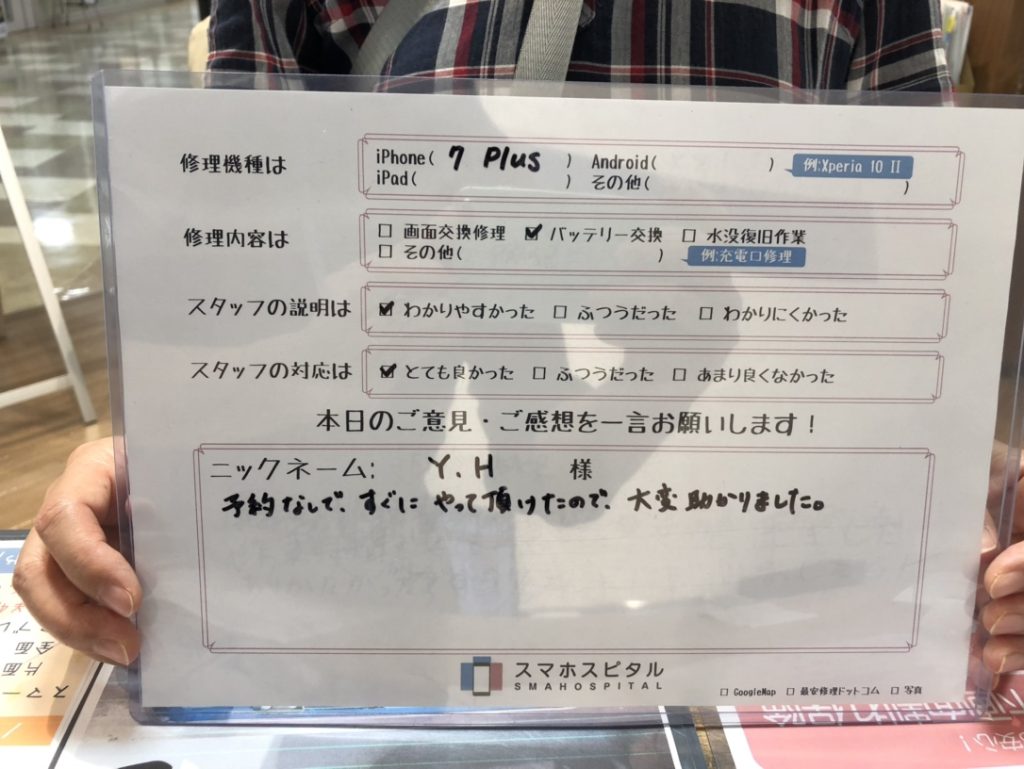 修理機種は
iPhone( 7 Plus ) Android( ) 例:Xperia 10 II
iPad( ) その他( )
修理内容は
☐ 画面交換修理 ☑ バッテリー交換 ☐ 水没復旧作業
☐ その他( ) 例:充電口修理
スタッフの説明は
☑ わかりやすかった ☐ ふつうだった ☐ わかりにくかった
スタッフの対応は
☑ とても良かった ☐ ふつうだった ☐ あまり良くなかった
本日のご意見・ご感想を一言お願いします!
ニックネーム: Y.H 様
予約なしで、すぐに やって頂けたので、大変助かりました。
スマホスピタル
SMAHOSPITAL
☐ GoogleMap ☐ 最安修理ドットコム ☐ 写真
全面
片面
スマー